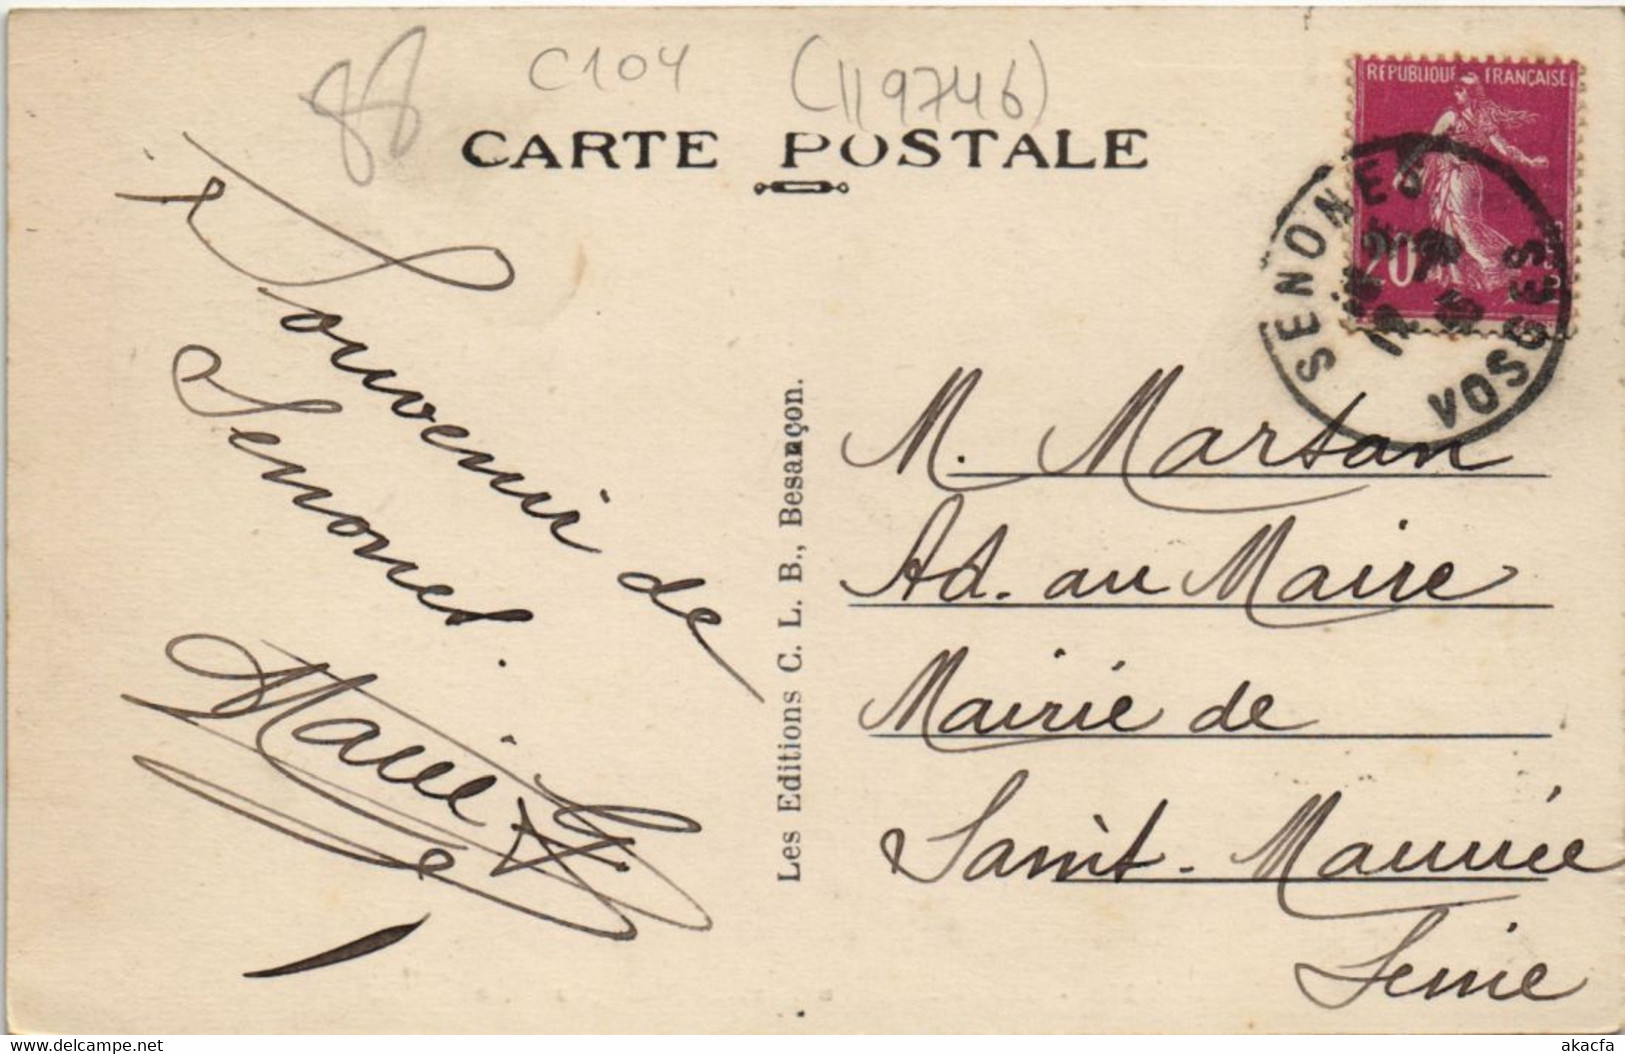 88
C104
(119746)
CARTE POSTALE
REPUBLIQUE FRANÇAISE
20c
SENONES
VOSGES
Souvenir de
Senones.
Les Editions C. L. B., Besançon.
M. Marsan
Ad. au Maire
Mairie de
Saint-Maurice
Seine
www.delcampe.net
akacfa